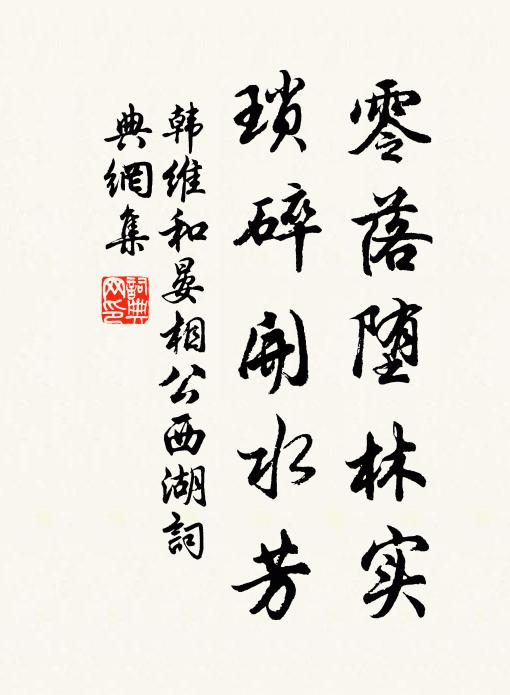 零落堕林实
瑣碎開水芳
韩維和晏相公西湖詞
典網集
詞典
网印